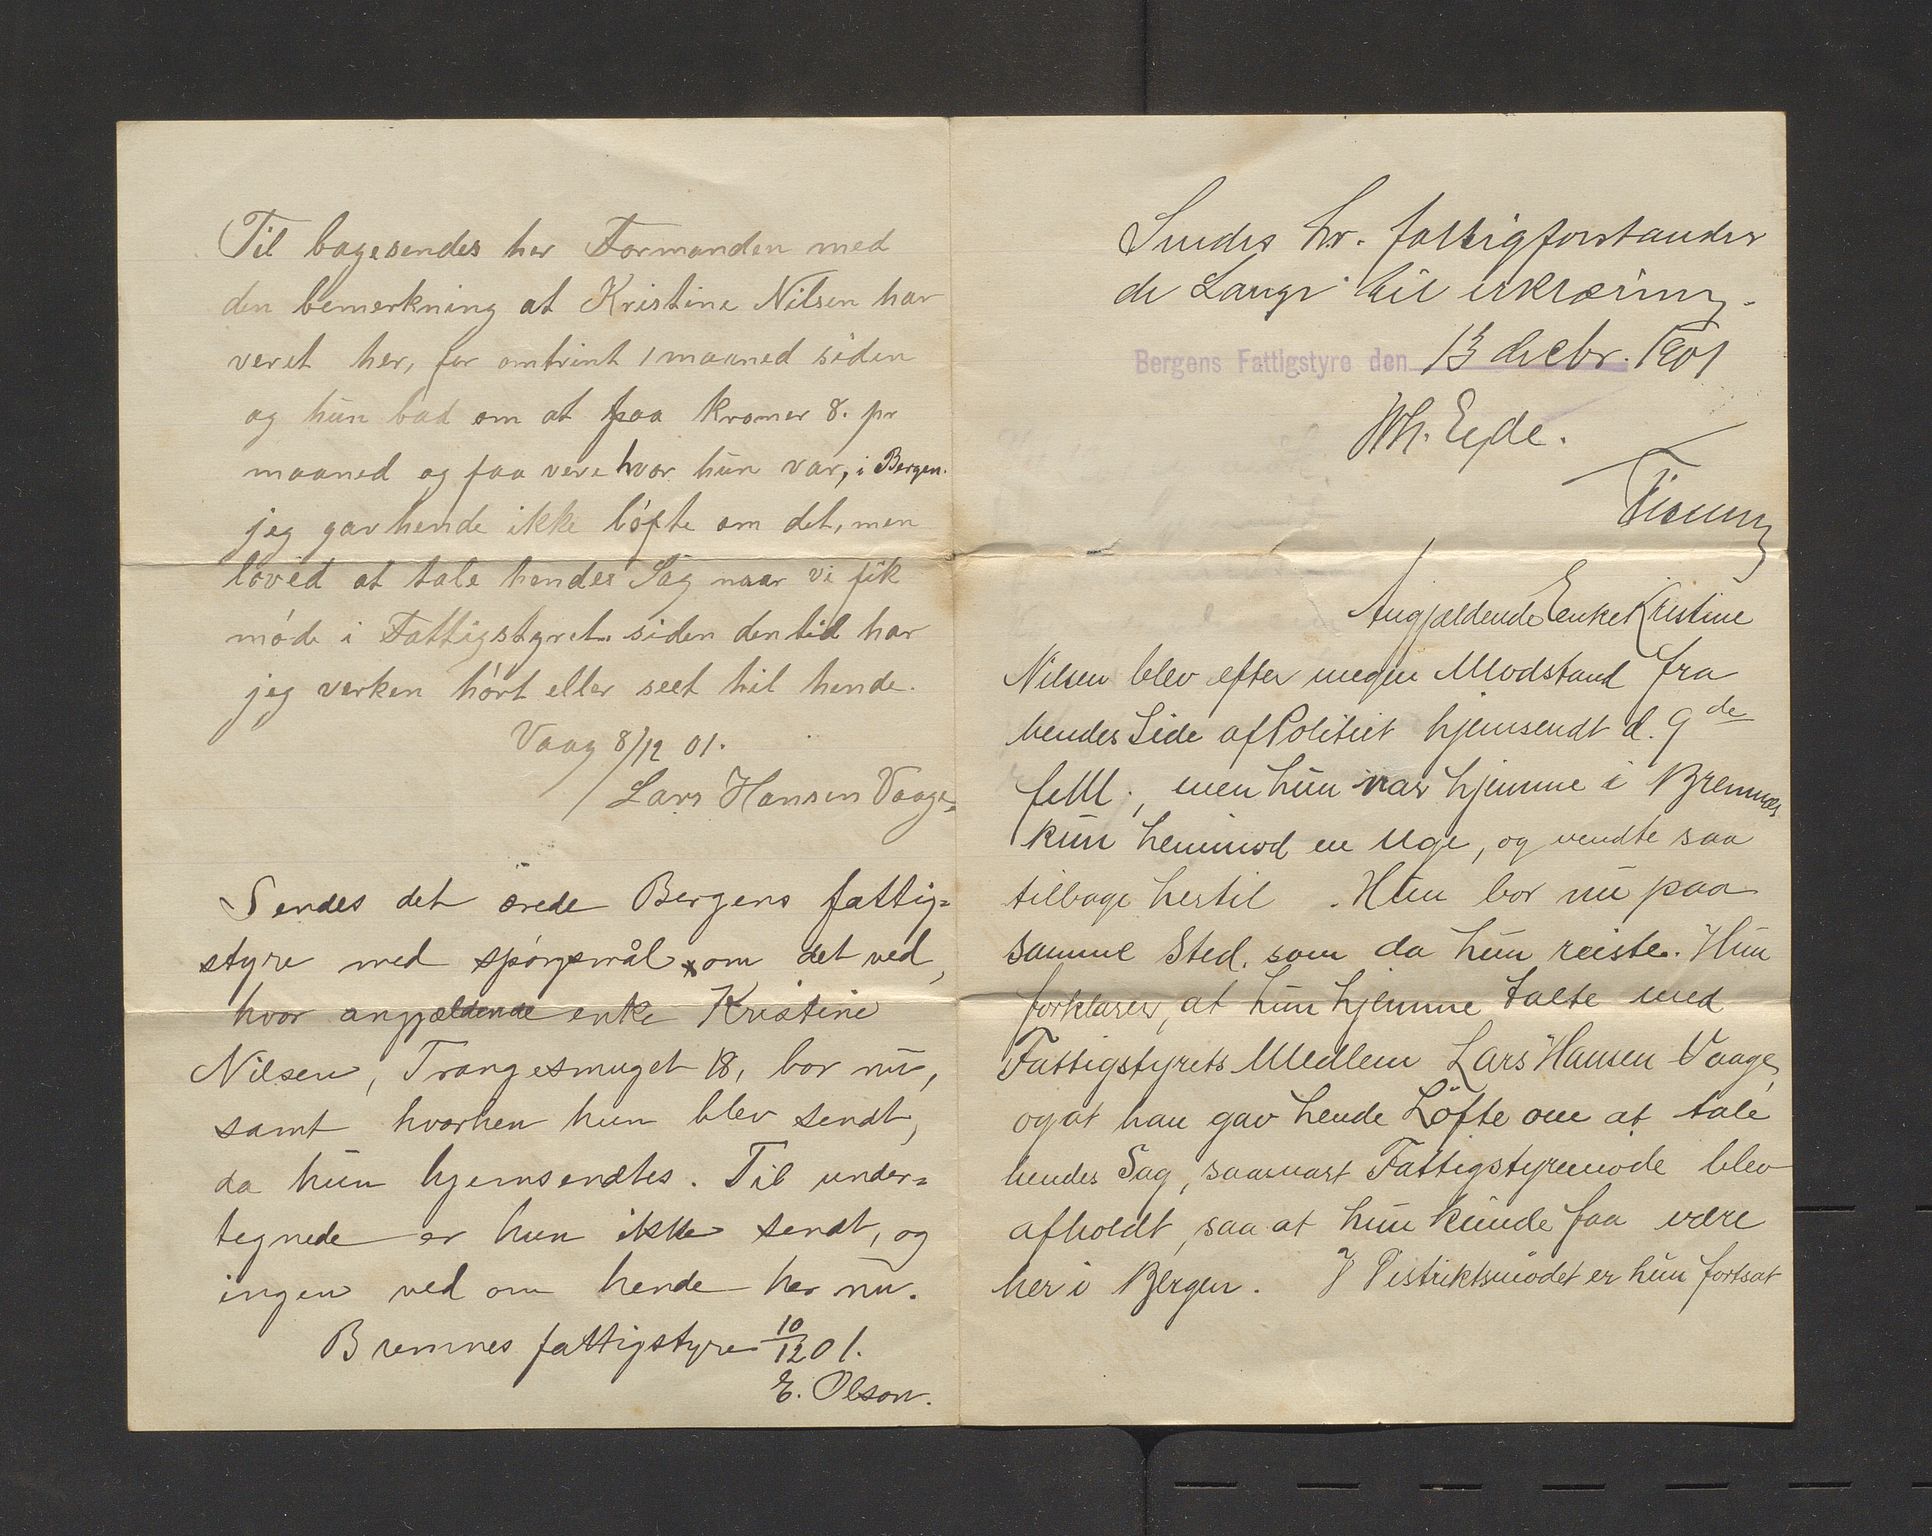 Til bagesendes her Formanden med
den bemerkning at Kristine Nilsen har
veret her, for omtrint 1 maaned siden
og hun bad om at faa kroner 8. pr
maaned og faa vere hvor hun var, i Bergen.
jeg gav hende ikke løfte om det, men
loved at tale hendes Sag naar vi fik
møde i Fattigstyret. siden den tid har
jeg verken hørt eller seet til hende.
Vaag 8/12 01.
Lars Hansen Vaage.
Sendes det ærede Bergens fattig=
styre med spørgsmål om det ved,
hvor angjældende enke Kristine
Nilsen, Trangesmuget 18, bor nu,
samt hvorhen hun blev sendt,
da hun hjemsendtes. Til under=
tegnede er hun ikke sendt, og
ingen ved om hende her nu.
Bremnes fattigstyre 10/12 01.
E. Olson.
Sendes hr. fattigforstander
de Lange til erklæring.
Bergens Fattigstyre den 13 decbr. 1901
Wh. Eyde.
Angjældende Enke Kristine
Nilsen blev efter megen Modstand fra
hendes Side af Politiet hjemsendt d. 9de
f.M., men hun var hjemme i Bremnæs
kun henimod en Uge, og vendte saa
tilbage hertil. Hun bor nu paa
samme Sted, som da hun reiste. Hun
forklarer, at hun hjemme talte med
Fattigstyrets Medlem Lars Hansen Vaage,
og at han gav hende Løfte om at tale
hendes Sag, saasnart Fattigstyremøde blev
afholdt, saa at hun kunde faa være
her i Bergen. I Distriktsmødet er hun fortsat